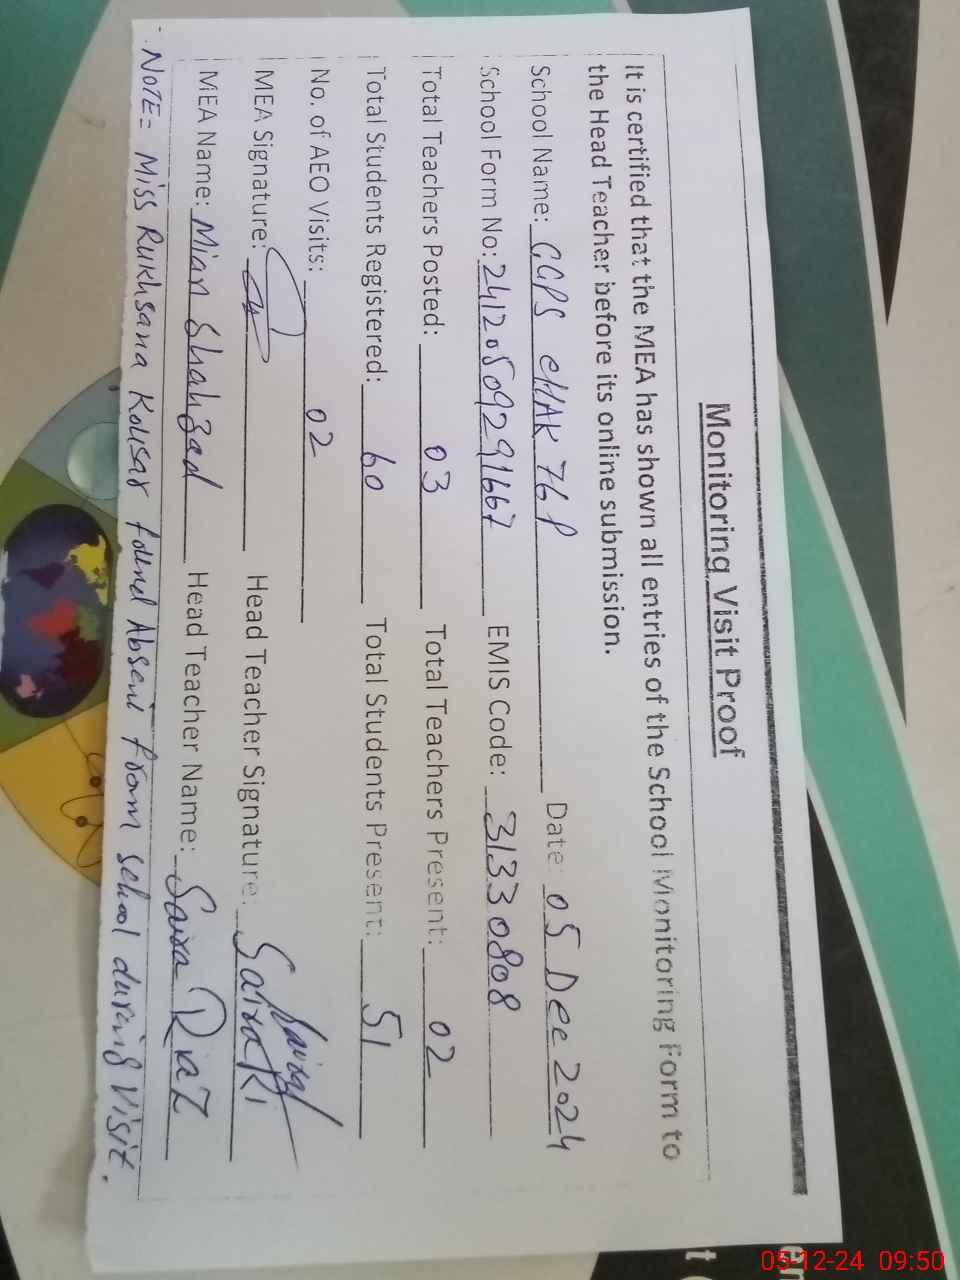 Monitoring Visit Proof
It is certified that the MEA has shown all entries of the School Monitoring Form to
the Head Teacher before its online submission.
School Name: GGPS CHAK 76 P Date: 05 Dec 2024
School Form No: 24120509291667 EMIS Code: 31330808
Total Teachers Posted: 03 Total Teachers Present: 02
Total Students Registered: 60 Total Students Present: 51
No. of AEO Visits: 02
MEA Signature: Head Teacher Signature:
MEA Name: Mian Shahzad Head Teacher Name: Saira Riaz
NOTE= Miss Rukhsana Kousar found Absent from school during visit.
05-12-24 09:50